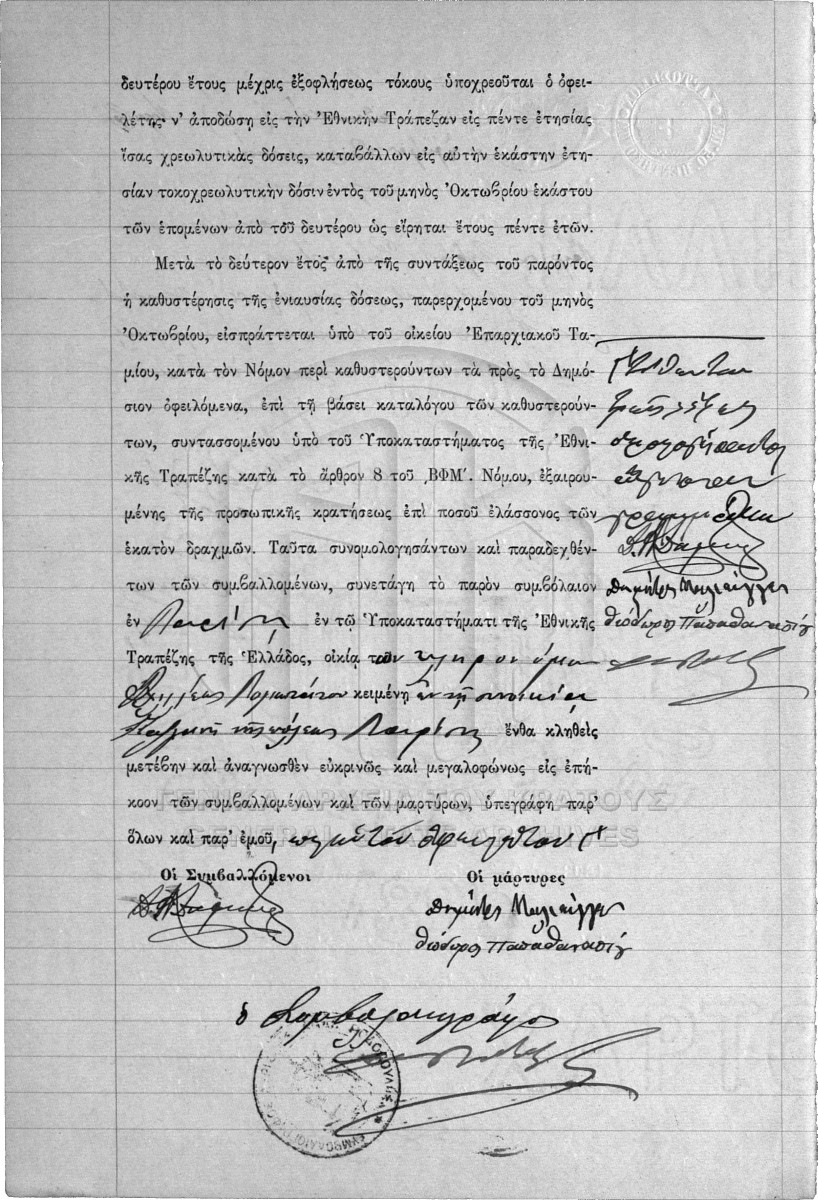 δευτέρου ἔτους μέχρις ἐξοφλήσεως τόκους ὑποχρεοῦται ὁ ὀφει-
λέτης ν' ἀποδώσῃ εἰς τὴν Ἐθνικὴν Τράπεζαν εἰς πέντε ἐτησίας
ἴσας χρεωλυτικὰς δόσεις, καταβάλλων εἰς αὐτὴν ἑκάστην ἐτη-
σίαν τοκοχρεωλυτικὴν δόσιν ἐντὸς τοῦ μηνὸς Ὀκτωβρίου ἑκάστου
τῶν ἑπομένων ἀπὸ τοῦ δευτέρου ὡς εἴρηται ἔτους πέντε ἐτῶν.
Μετὰ τὸ δεύτερον ἔτος ἀπὸ τῆς συντάξεως τοῦ παρόντος
ἡ καθυστέρησις τῆς ἐνιαυσίας δόσεως, παρερχομένου τοῦ μηνὸς
Ὀκτωβρίου, εἰσπράττεται ὑπὸ τοῦ οἰκείου Ἐπαρχιακοῦ Τα-
μίου, κατὰ τὸν Νόμον περὶ καθυστερούντων τὰ πρὸς τὸ Δημό-
σιον ὀφειλόμενα, ἐπὶ τῇ βάσει καταλόγου τῶν καθυστερούν-
των, συντασσομένου ὑπὸ τοῦ Ὑποκαταστήματος τῆς Ἐθνι-
κῆς Τραπέζης κατὰ τὸ ἄρθρον 8 τοῦ ͵ΒΦΜ΄. Νόμου, ἐξαιρου-
μένης τῆς προσωπικῆς κρατήσεως ἐπὶ ποσοῦ ἐλάσσονος τῶν
ἑκατὸν δραχμῶν. Ταῦτα συνομολογησάντων καὶ παραδεχθέν-
των τῶν συμβαλλομένων, συνετάγη τὸ παρὸν συμβόλαιον
ἐν Λαρίσῃ ἐν τῷ Ὑποκαταστήματι τῆς Ἐθνικῆς
Τραπέζης τῆς Ἑλλάδος, οἰκίᾳ τῶν κληρονόμων
κειμένῃ ἐν τῇ συνοικίᾳ
τῆς πόλεως Λαρίσης ἔνθα κληθεὶς
μετέβην καὶ ἀναγνωσθὲν εὐκρινῶς καὶ μεγαλοφώνως εἰς ἐπή-
κοον τῶν συμβαλλομένων καὶ τῶν μαρτύρων, ὑπεγράφη παρ'
ὅλων καὶ παρ' ἐμοῦ,
ΓΕΝΙΚΑ ΑΡΧΕΙΑ ΤΟΥ ΚΡΑΤΟΥΣ
GENERAL STATE ARCHIVES
Οἱ Συμβαλλόμενοι
Οἱ μάρτυρες
Θεόδωρος Παπαθανασίου
ὁ Συμβολαιογράφος
Θεόδωρος Παπαθανασίου